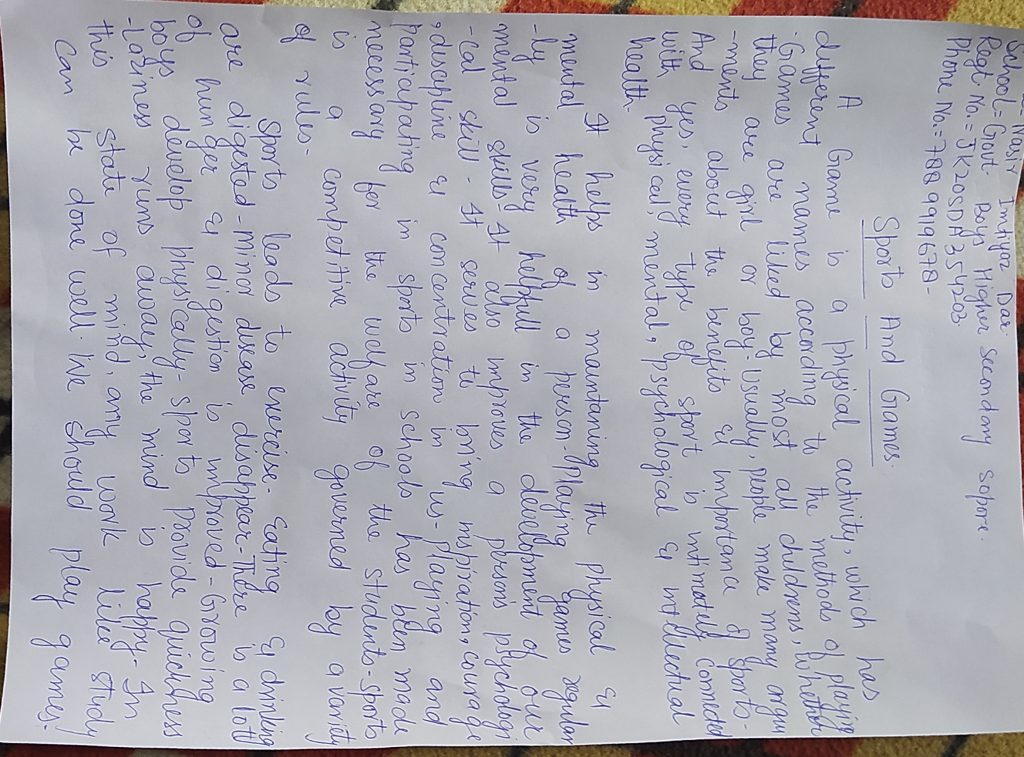 = Nasir Imtiyaz Dar.
School = Govt. Boys Higher secondary sopore.
Regt. No. = JK20SDA354202
Phone No. = 7889919678-
Sports And Games.
A Game is a physical activity, which has
different names according to the methods of playing
. Games are liked by most all childrens, whether
they are girl or boy. Usually, people make many argu
-ments about the benefits & importance of sports.
And yes, every type of sport is intimately connected
with physical, mental, psychological & intellectual
health.
It helps in maintaining the physical &
mental health of a person. Playing games regular
-ly is very helpfull in the development of our
mental skills. It also improves a person's psychologi
-cal skill. It series to bring inspiration, courage
, discipline & concentration in us. Playing and
participating in sports in schools has been made
necessary for the welfare of the students. Sports
is a competitive activity governed by a varity
of rules.
Sports leads to exercise. Eating & drinking
are digested. Minor disease disappear. There is a lott
of hunger & digestion is improved. Growing
boys develop physically. Sports provide quickness
. Laziness runs away, the mind is happy. In
this state of mind, any work like study
can be done well. We should play games.